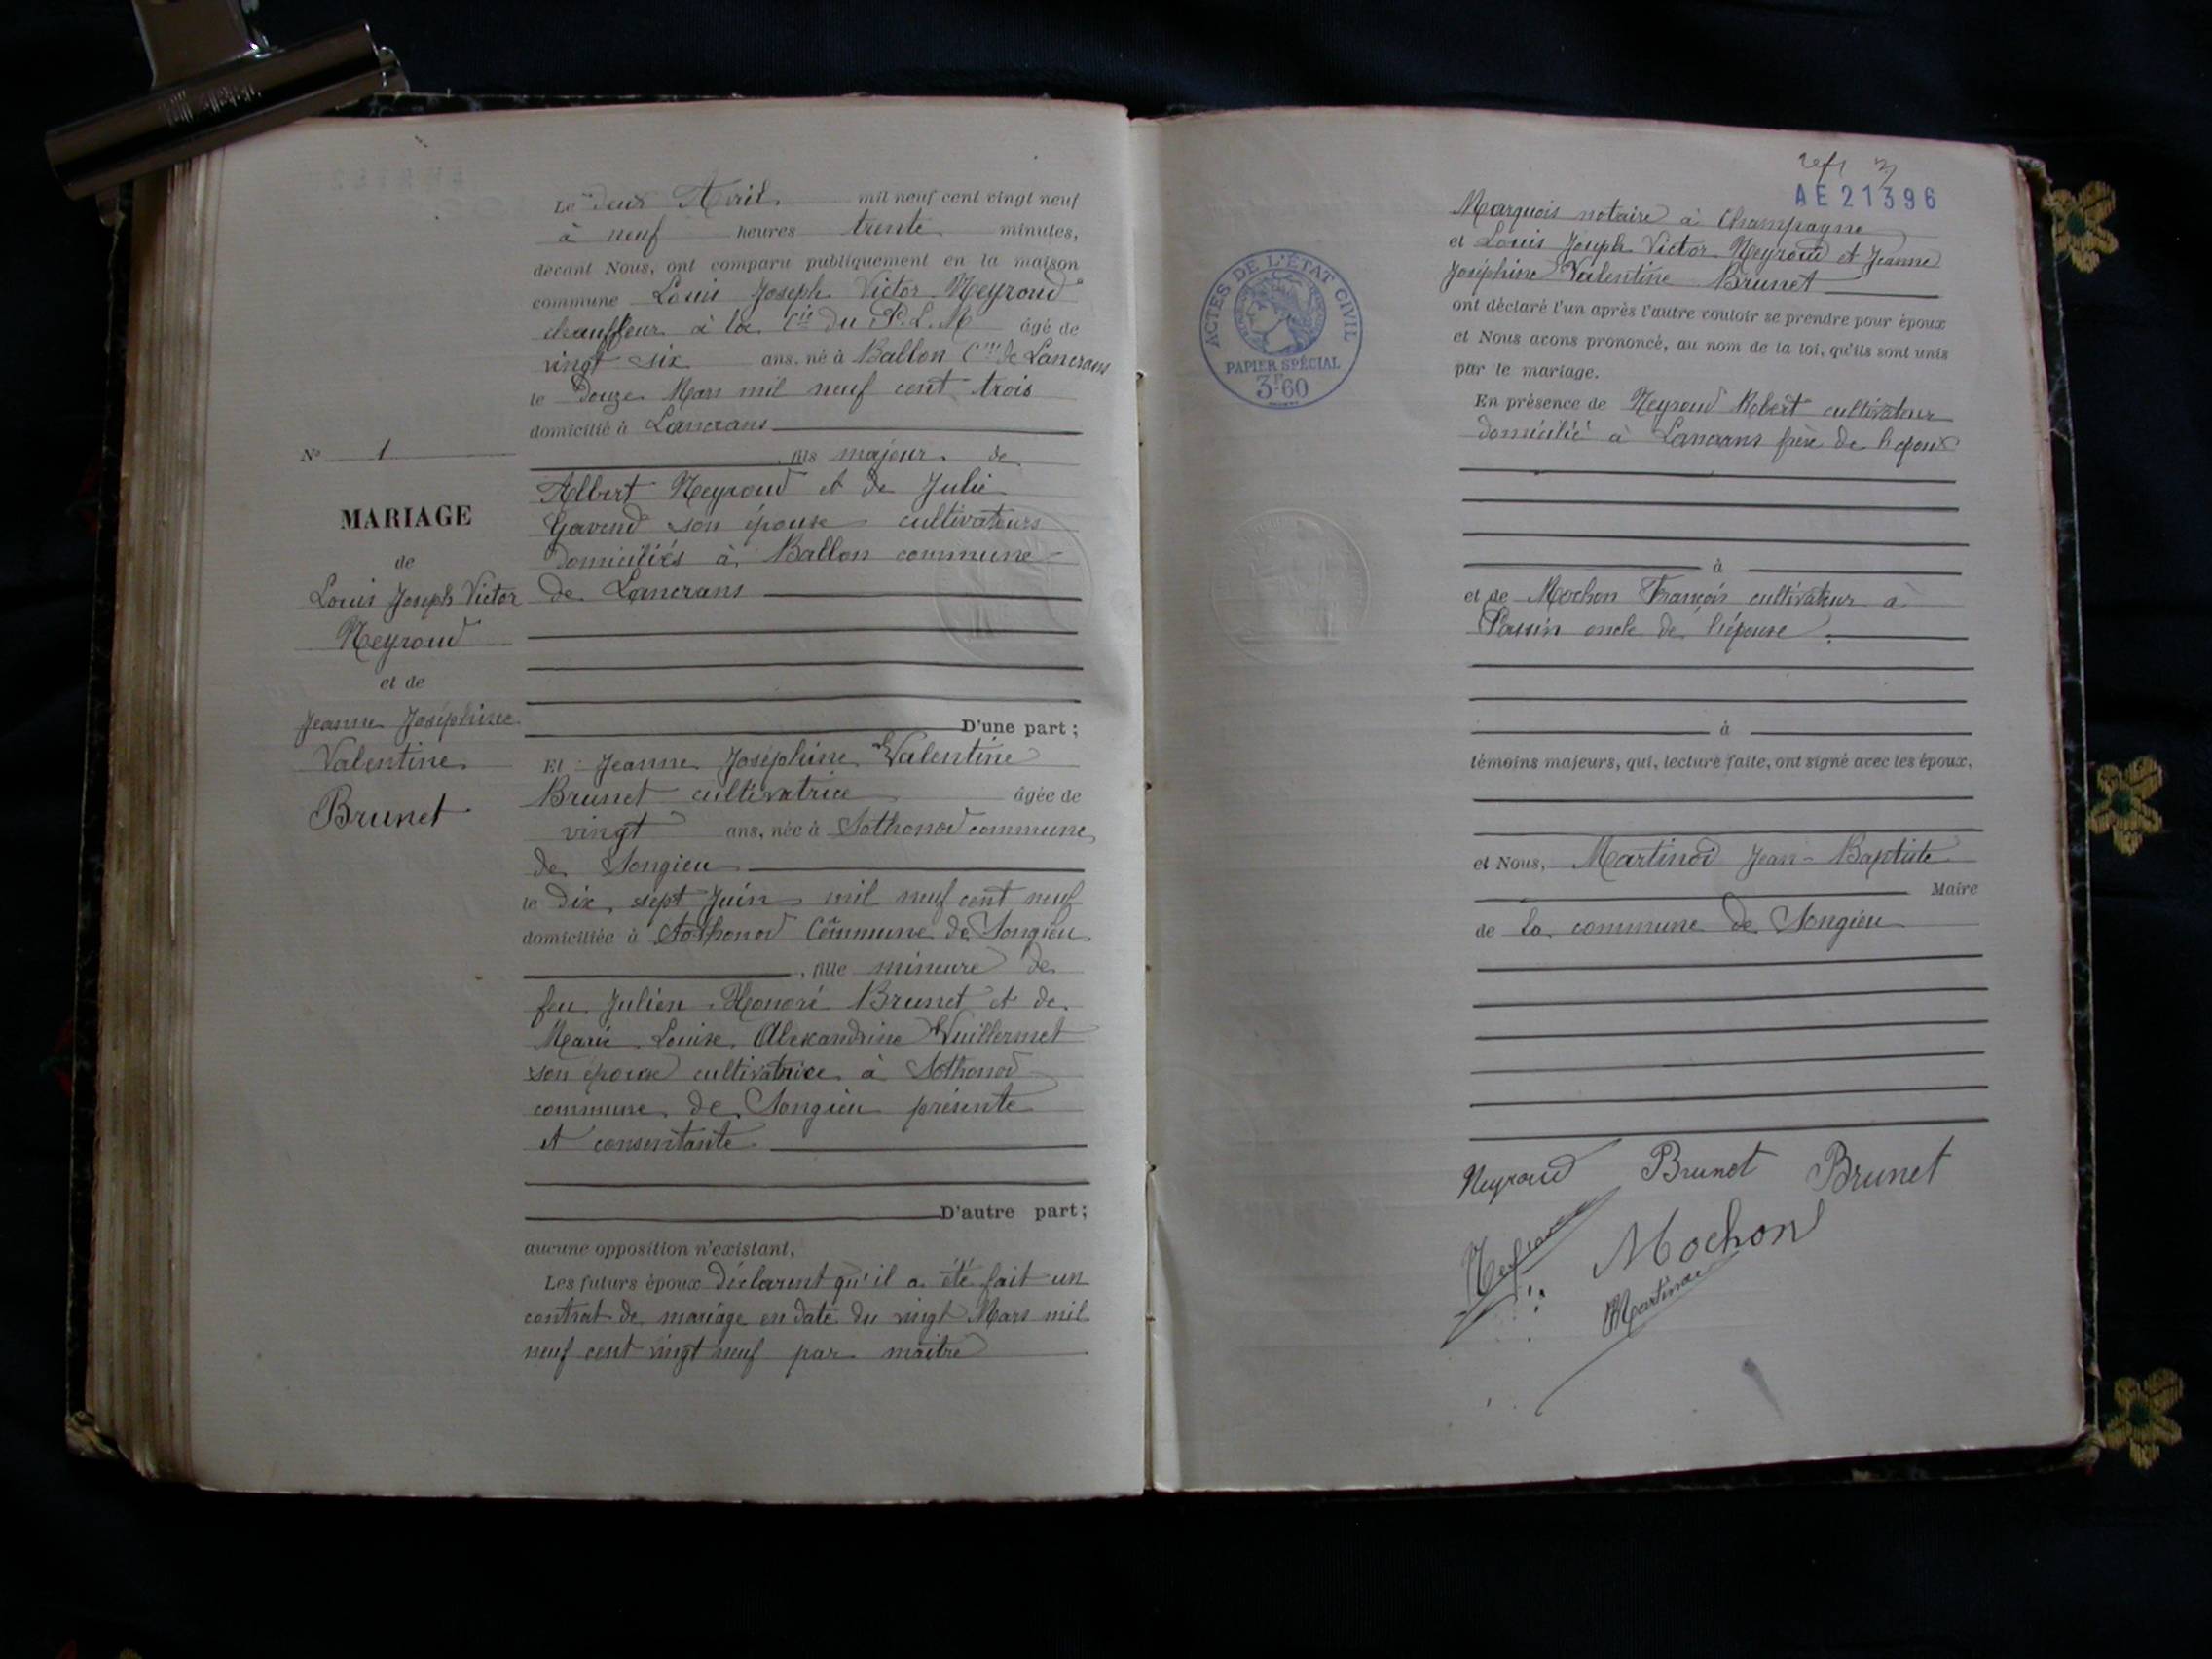 Le deux Avril mil neuf cent vingt neuf
à neuf heures trente minutes,
devant Nous, ont comparu publiquement en la maison
commune Louis Joseph Victor Neyroud
chauffeur à la Cie du P.L.M âgé de
vingt six ans, né à Ballon Cne de Lancrans
le douze Mars mil neuf cent trois
domicilié à Lancrans
fils majeur de
Albert Neyroud et de Julie
Gavend son épouse cultivateurs
domiciliés à Ballon commune
de Lancrans
D'une part ;
Et Jeanne Joséphine Valentine
Brunet cultivatrice âgée de
vingt ans, née à Sothonod commune
de Songieu
le dix sept Juin mil neuf cent neuf
domiciliée à Sothonod Commune de Songieu
, fille mineure de
feu Julien Honoré Brunet et de
Marie Louise Alexandrine Vuillermet
son épouse cultivatrice à Sothonod
commune de Songieu présente
et consentante
D'autre part ;
aucune opposition n'existant,
Les futurs époux déclarent qu'il a été fait un
contrat de mariage en date du vingt Mars mil
neuf cent vingt neuf par maître
No 1
MARIAGE
de
Louis Joseph Victor
Neyroud
et de
Jeanne Joséphine
Valentine
Brunet
AE21396
ACTES DE L'ÉTAT CIVIL
PAPIER SPÉCIAL
3F60
Marquois notaire à Champagne
et Louis Joseph Victor Neyroud et Jeanne
Joséphine Valentine Brunet
ont déclaré l'un après l'autre vouloir se prendre pour époux
et Nous avons prononcé, au nom de la loi, qu'ils sont unis
par le mariage.
En présence de Neyroud Robert cultivateur
domicilié à Lancrans frère de l'époux
à
et de Mochon François cultivateur à
Passin oncle de l'épouse
à
témoins majeurs, qui, lecture faite, ont signé avec les époux,
et Nous, Martinod Jean-Baptiste
Maire
de la commune de Songieu
Neyroud Brunet Brunet
Neyroud Mochon
Martinod